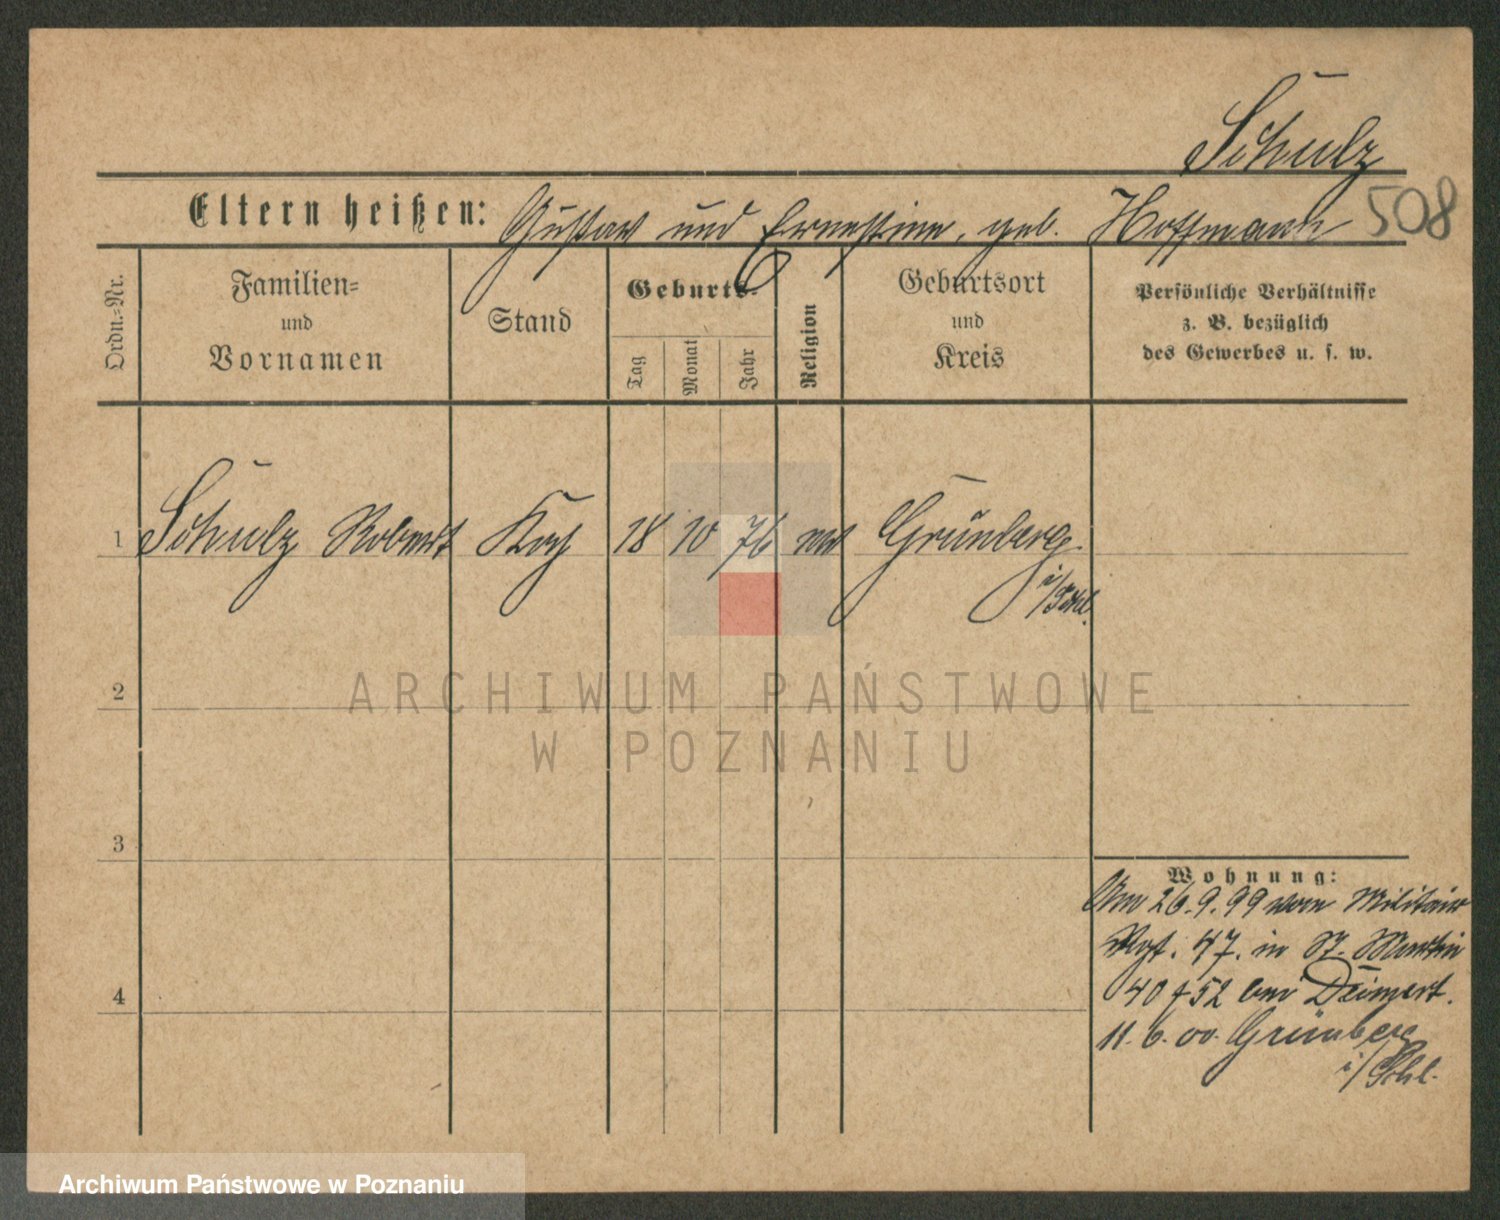 Schulz
Eltern heißen: Gustav und Ernestine, geb. Hoffmann 508
Ordn.-Nr.
Familien-
und
Vornamen
Stand
Geburts-
Tag
Monat
Jahr
Religion
Geburtsort
und
Kreis
Persönliche Verhältnisse
z. B. bezüglich
des Gewerbes u. s. w.
1 Schulz Robert Koch 18 10 76 ev Grünberg
i/Schl.
2
ARCHIWUM PAŃSTWOWE
W POZNANIU
3
Wohnung:
Am 26.9.99 vom Militair
Rgt. 47. in St. Martin
40 52 bei
4
11. 6. 00. Grünberg
i/Schl.
Archiwum Państwowe w Poznaniu